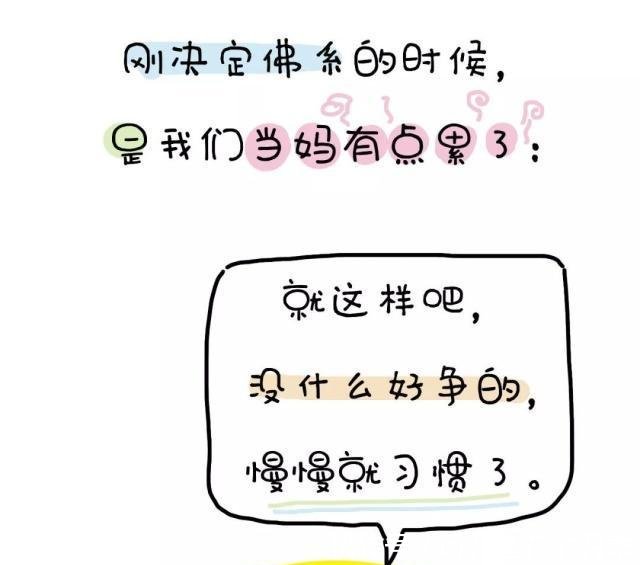 刚决定佛系的时候，
是我们当妈有点累了：
就这样吧，
没什么好争的，
慢慢就习惯了。